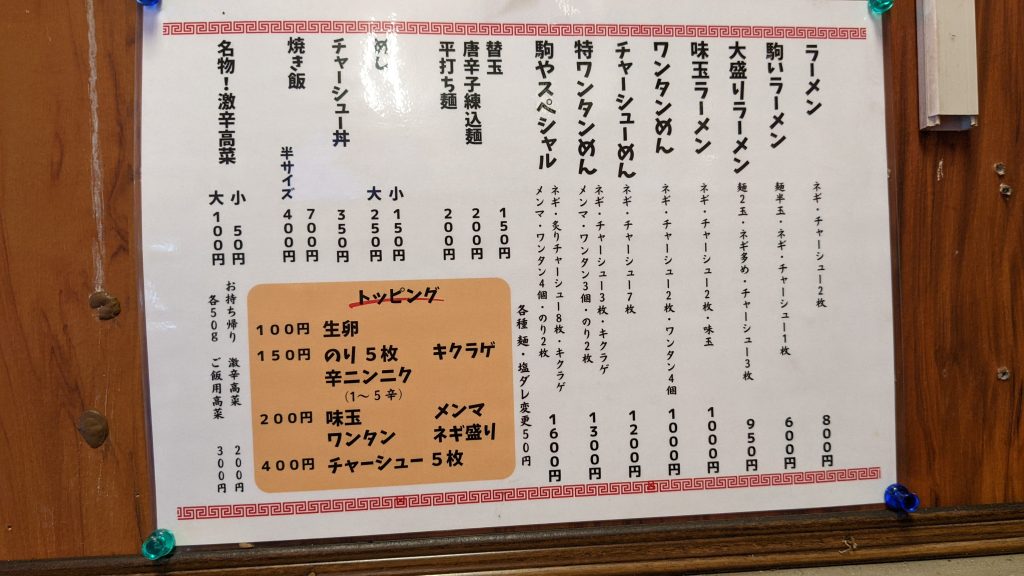 ラーメン ネギ・チャーシュー2枚 800円
駒いラーメン 麺半玉・ネギ・チャーシュー1枚 600円
大盛りラーメン 麺2玉・ネギ多め・チャーシュー3枚 950円
味玉ラーメン ネギ・チャーシュー2枚・味玉 1000円
ワンタンめん ネギ・チャーシュー2枚・ワンタン4個 1000円
チャーシューめん ネギ・チャーシュー7枚 1200円
特ワンタンめん ネギ・チャーシュー3枚・キクラゲ
メンマ・ワンタン3個・のり2枚 1300円
駒やスペシャル ネギ・炙りチャーシュー8枚・キクラゲ
メンマ・ワンタン4個・のり2枚 1600円
各種 麺・塩ダレ変更50円
替玉 150円
唐辛子練込麺 200円
平打ち麺 200円
めし 小 150円
大 250円
チャーシュー丼 350円
焼き飯 700円
半サイズ 400円
名物!激辛高菜 小 50円
大 100円
お持ち帰り 激辛高菜 200円
各50g ご飯用高菜 300円
トッピング
100円 生卵
150円 のり5枚 キクラゲ
辛ニンニク
(1~5辛)
200円 味玉 メンマ
ワンタン ネギ盛り
400円 チャーシュー5枚